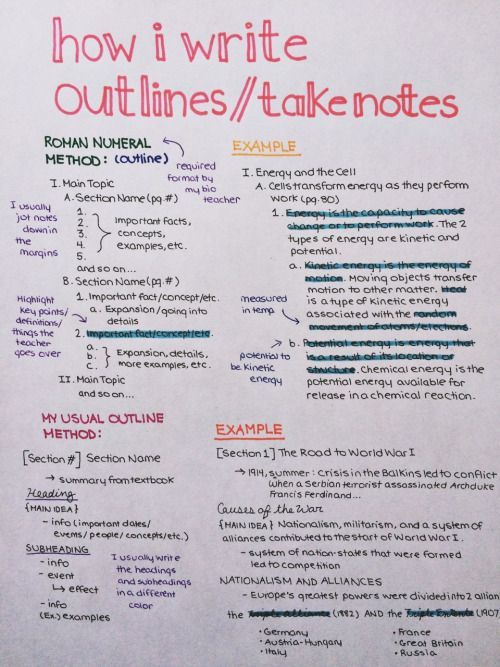 how i write
outlines//take notes
ROMAN NUMERAL
METHOD: (outline)
required
format by
my bio
teacher
I. Main Topic
A. Section Name (pg.#)
1.
2.
3.
4.
5.
Important facts,
concepts,
examples, etc.
and so on...
I usually
jot notes
down in
the
margins
B. Section Name (pg.#)
1. Important fact/concept/etc.
a. Expansion/going into
details
2. Important fact/concept/etc.
a.
b.
c.
Expansion, details,
more examples, etc.
Highlight
key points/
definitions/
things the
teacher
goes over
II. Main Topic
and so on...
EXAMPLE
I. Energy and the Cell
A. Cells transform energy as they perform
work (pg. 80)
1. Energy is the capacity to cause
change or to perform work. The 2
types of energy are kinetic and
potential.
a. Kinetic energy is the energy of
motion. Moving objects transfer
motion to other matter. Heat
is a type of kinetic energy
associated with the random
movement of atoms/electrons.
measured
in temp
b. Potential energy is energy that
is a result of its location or
structure. Chemical energy is the
potential energy available for
release in a chemical reaction.
potential to
be kinetic
energy
MY USUAL OUTLINE
METHOD:
[Section #] Section Name
→ summary from textbook
Heading
{MAIN IDEA}
- info (important dates/
events/people/concepts/etc.)
SUBHEADING
- info
- event
↳ effect
- info
(Ex:) examples
I usually write
the headings
and subheadings
in a different
color
EXAMPLE
[Section 1] The Road to World War I
→ 1914, summer: Crisis in the Balkins led to conflict
when a Serbian terrorist assassinated Archduke
Francis Ferdinand...
Causes of the War
{MAIN IDEA} Nationalism, militarism, and a system of
alliances contributed to the start of World War I.
- system of nation-states that were formed
led to competition
NATIONALISM AND ALLIANCES
- Europe's greatest powers were divided into 2 allian
the Triple Alliance (1882) AND the Triple Entente (1907
• Germany
• Austria-Hungary
• Italy
• France
• Great Britain
• Russia